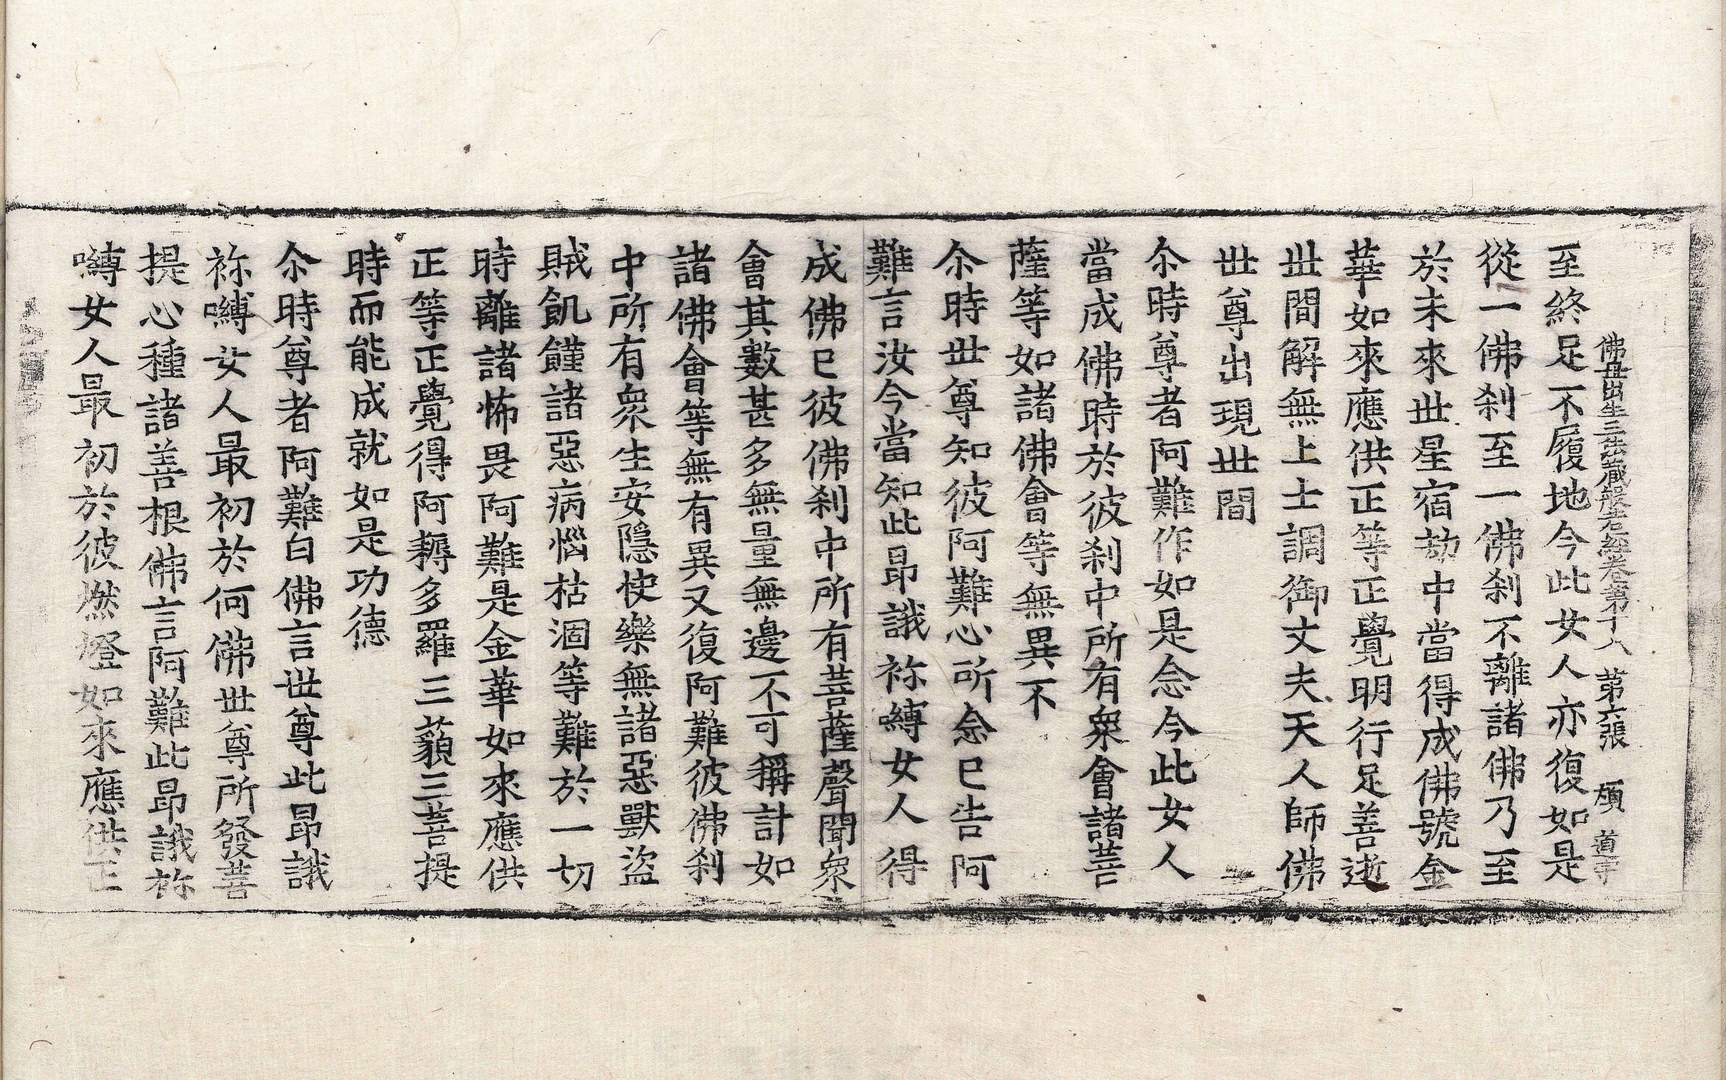 佛母出生三法藏般若經卷第十八　第六張　頎　道宇
至終足不履地今此女人亦復如是
從一佛刹至一佛刹不離諸佛乃至
於未來世星宿劫中當得成佛號金
華如來應供正等正覺明行足善逝
世間解無上士調御丈夫天人師佛
世尊出現世間
尒時尊者阿難作如是念今此女人
當成佛時於彼刹中所有衆會諸菩
薩等如諸佛會等無異不
尒時世尊知彼阿難心所念已告阿
難言汝今當知此昻誐祢嚩女人得
成佛已彼佛刹中所有菩薩聲聞衆
會其數甚多無量無邊不可稱計如
諸佛會等無有異又復阿難彼佛刹
中所有衆生安隱快樂無諸惡獸盜
賊飢饉諸惡病惱枯涸等難於一切
時離諸怖畏阿難是金華如來應供
正等正覺得阿耨多羅三藐三菩提
時而能成就如是功德
尒時尊者阿難白佛言世尊此昻誐
祢嚩女人最初於何佛世尊所發菩
提心種諸善根佛言阿難此昻誐祢
嚩女人最初於彼燃燈如來應供正